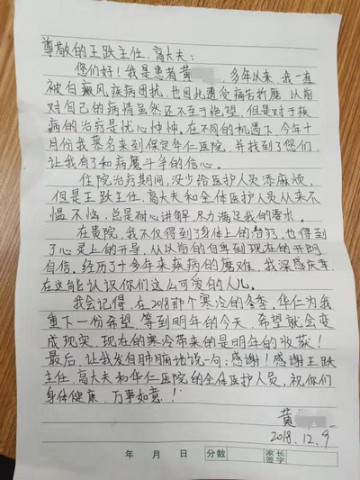 尊敬的王跃主任、高大夫:
您们好!我是患者黄 多年以来,我一直
被白癜风疾病困扰,也因此遭受痛苦折磨,以前
对自己的病情虽然还不至于绝望,但是对于疾
病的治疗是忧心忡忡,在不同的机遇下,今年十
月份我慕名来到保定华仁医院,并找到了您们,
让我有了和病魔斗争的信心。
住院治疗期间,没少给医护人员添麻烦,
但是王跃主任、高大夫和全体医护人员从来不
愠不恼,总是耐心讲解,尽力满足我的要求。
在贵院,我不仅得到了身体上的治疗,也得到
了心灵上的开导,从以前的自卑到现在的开朗
自信,经历了十多年来疾病的磨难,我深感庆幸
在这能认识你们这么可爱的人儿。
我会记得,在2018那个寒冷的冬季,华仁为我
重下一份希望,等到明年的今天,希望就会变
成现实,现在的寒冷带来的是明年的收获!
最后,让我发自肺腑地说一句:感谢!感谢王跃
主任、高大夫和华仁医院的全体医护人员,祝你们
身体健康,万事如意!
黄
2018.12.9
年 月 日 分数 家长签字